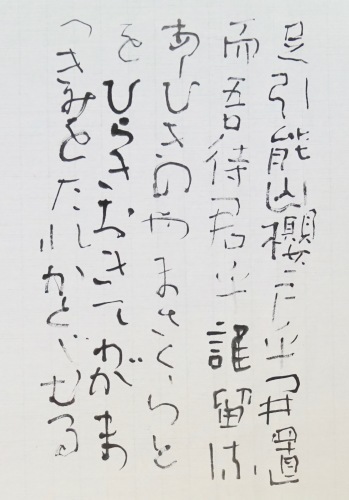 足引能山櫻戸乎开置
而吾待君乎誰留流
あしひきのやまさくらと
をひらきおきてわがま
つきみをたれかとゞむる